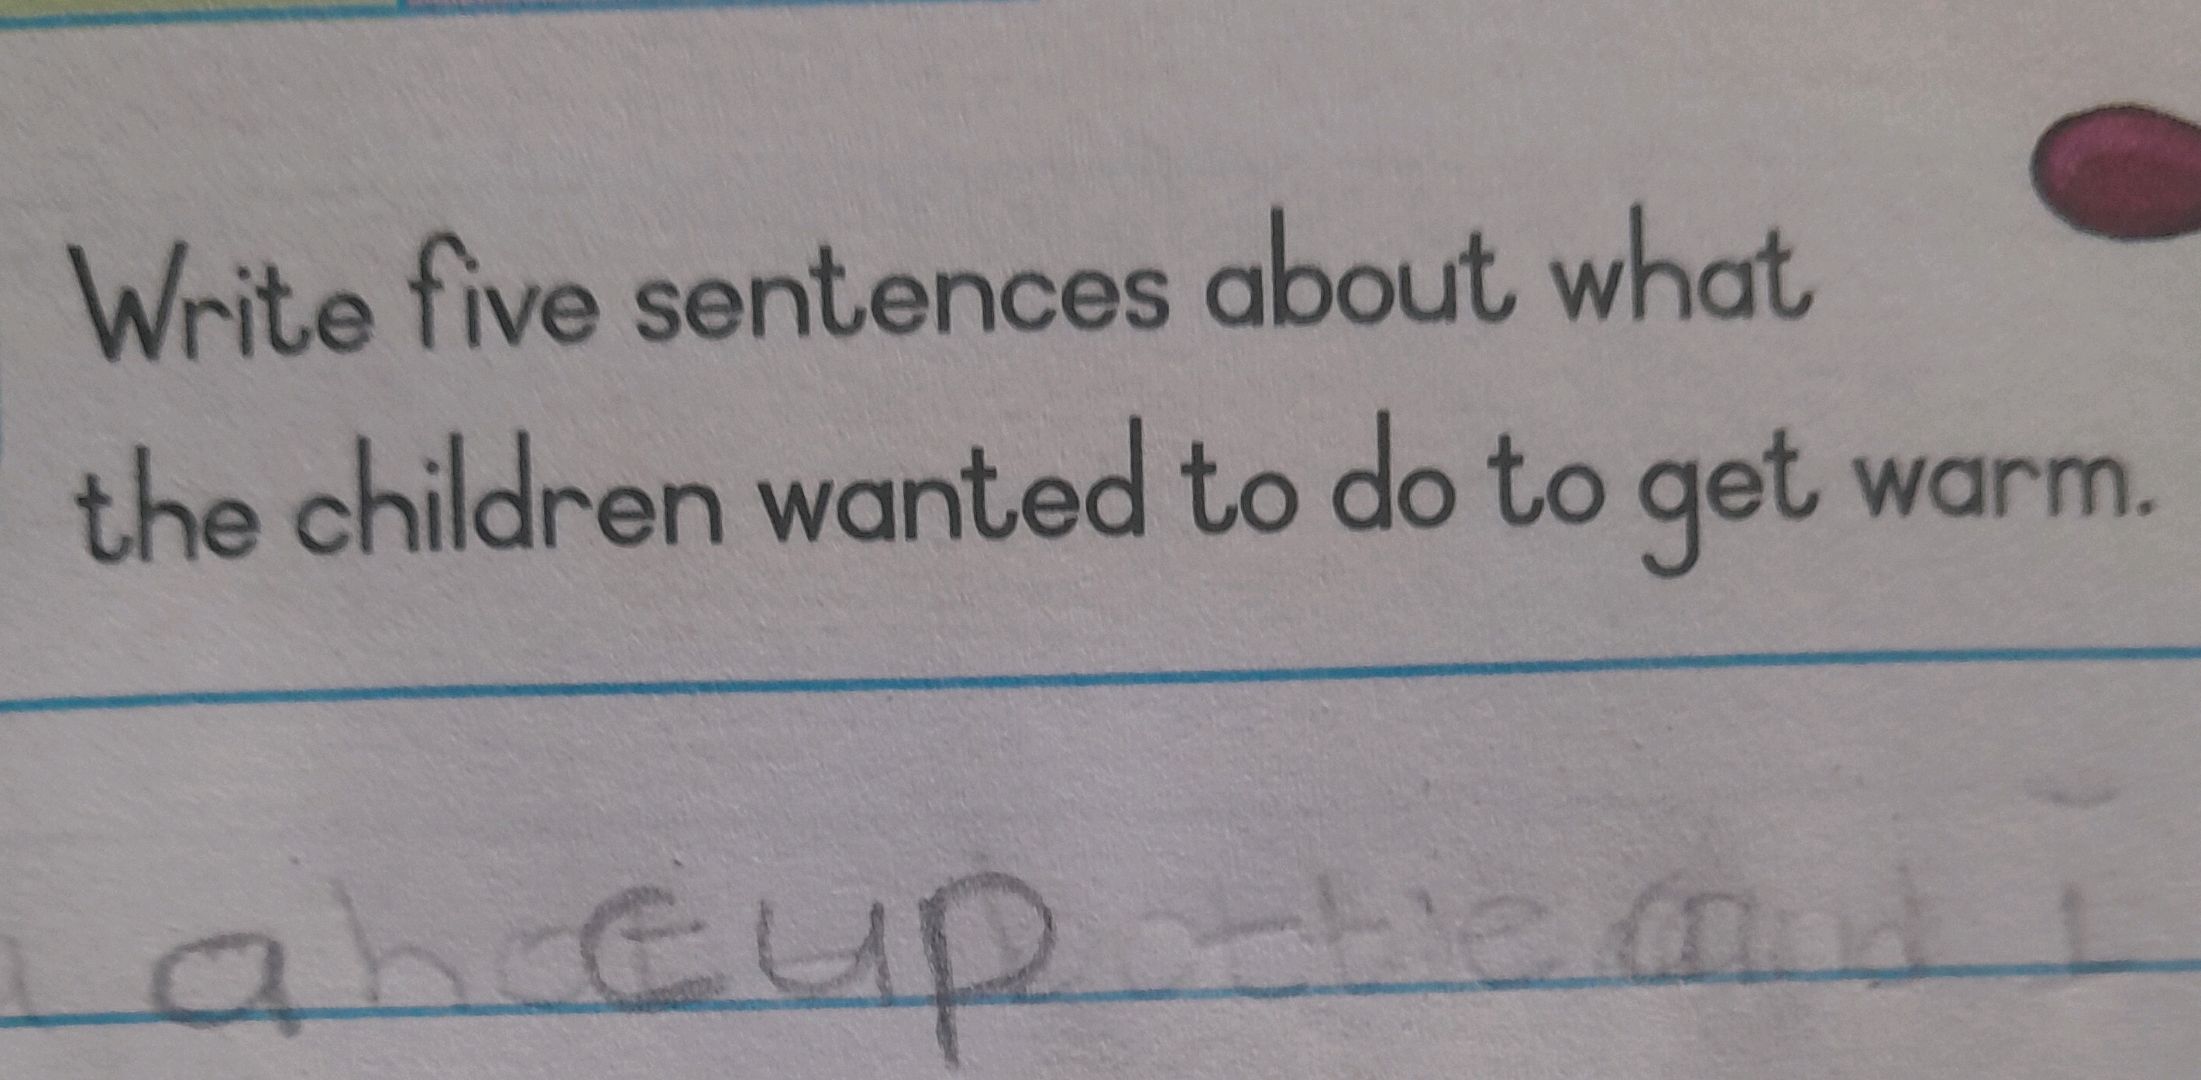 Write five sentences about what
the children wanted to do to get warm.
a cup